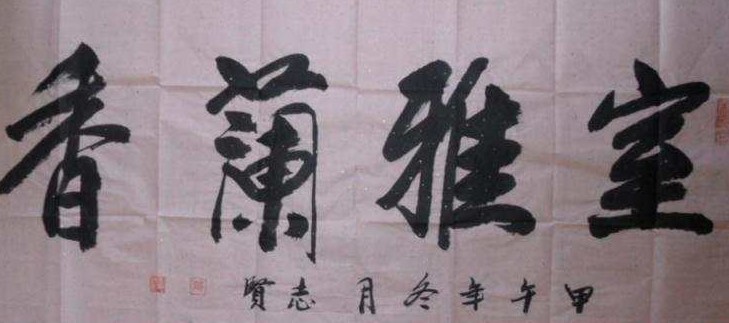 室雅蘭香
甲午年冬月志賢